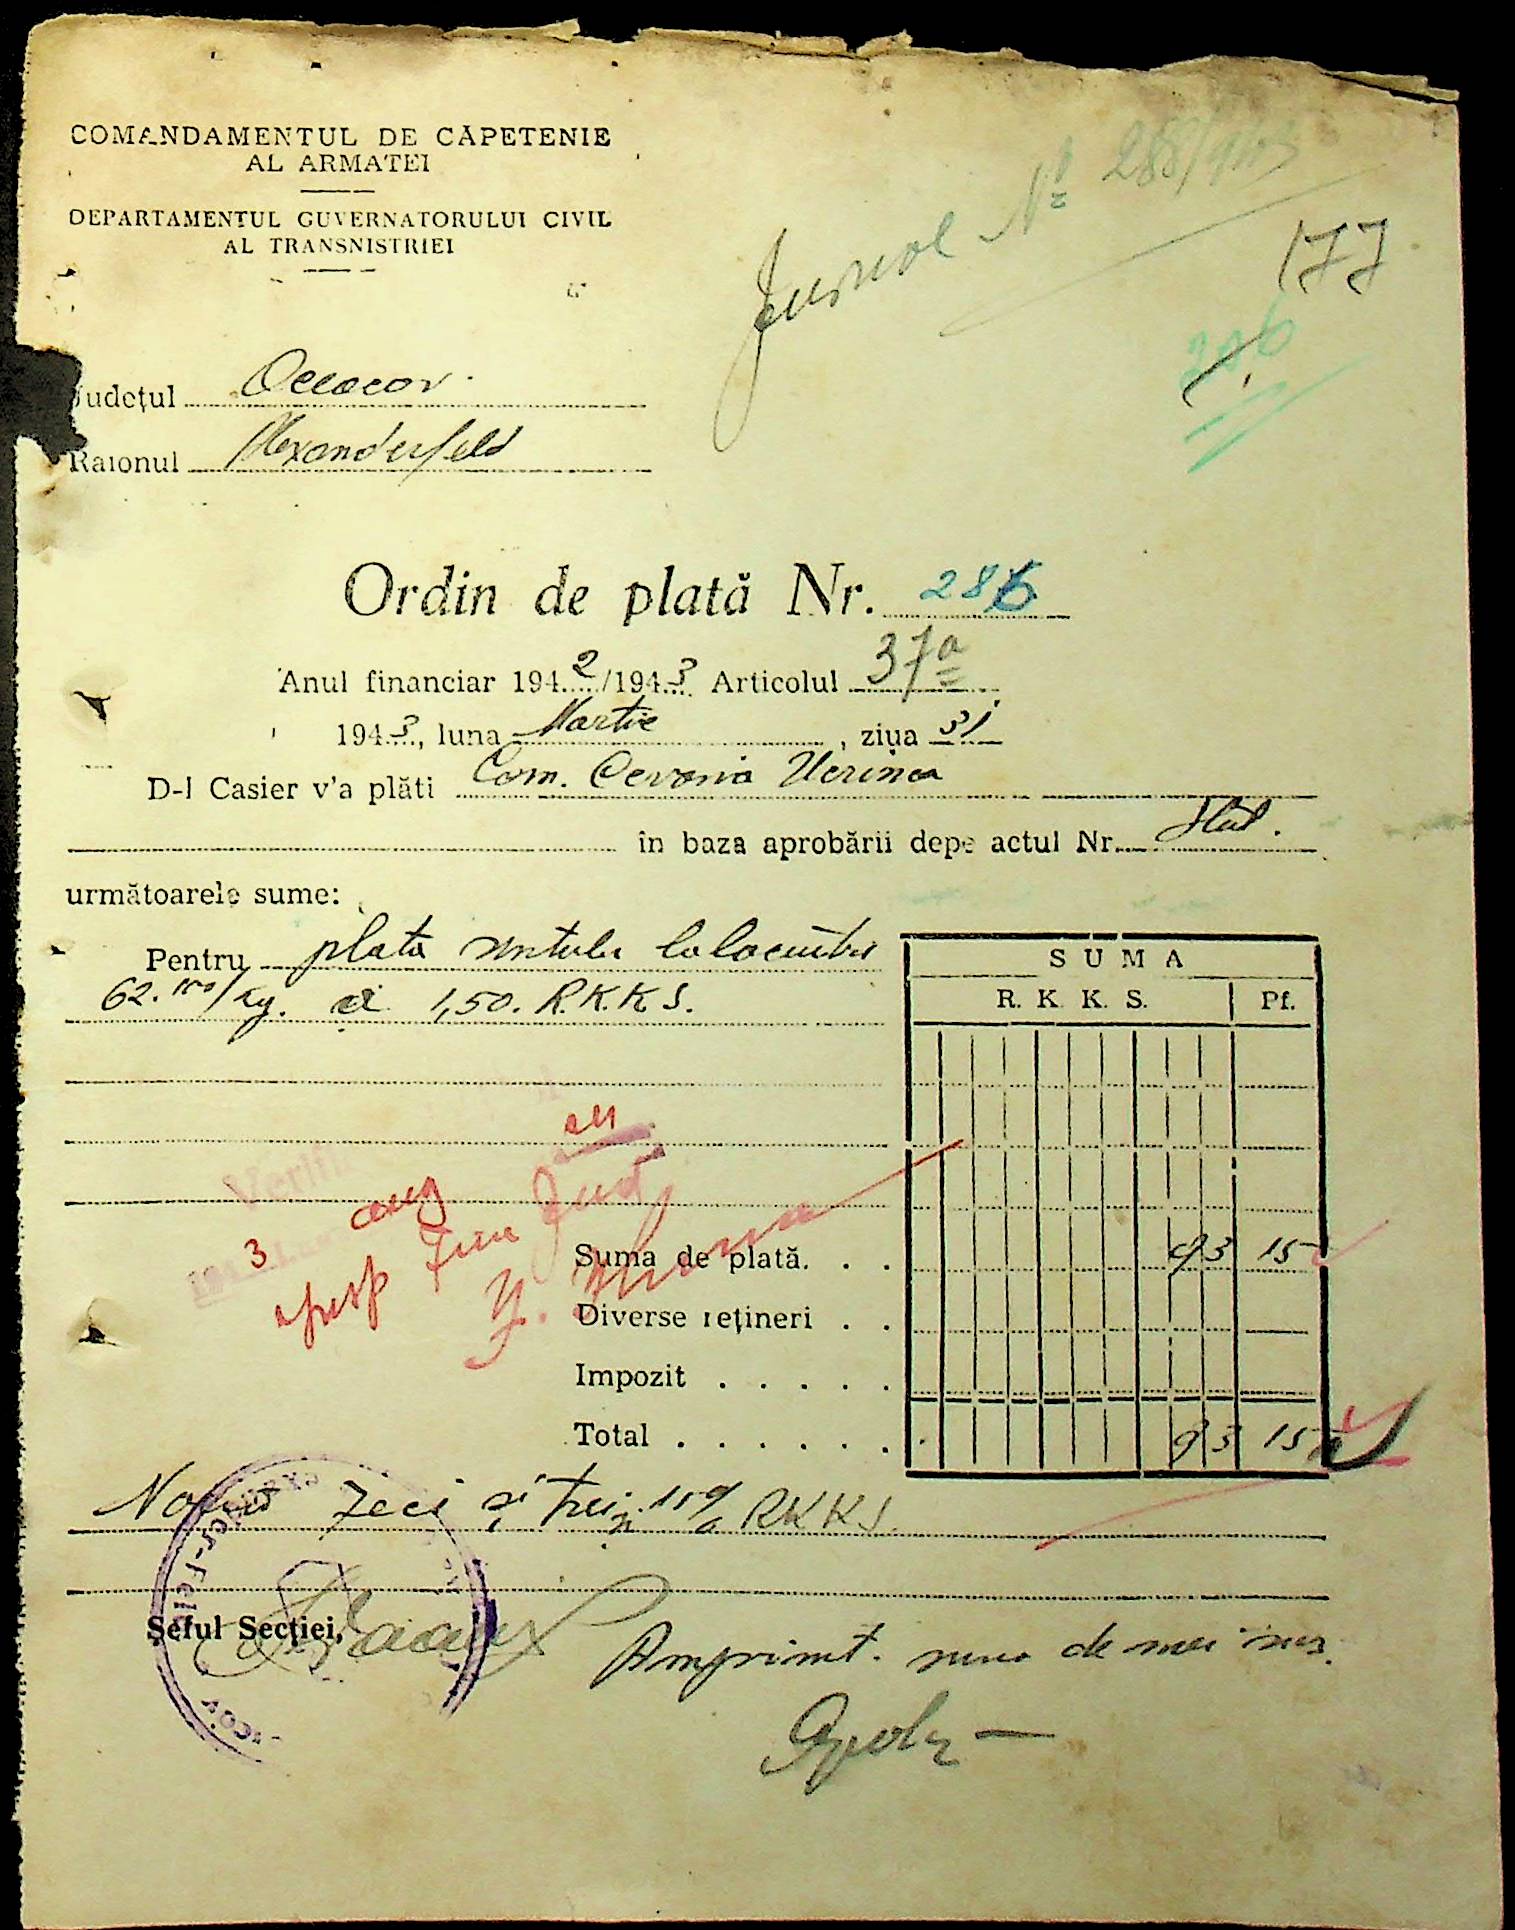 COMANDAMENTUL DE CĂPETENIE
AL ARMATEI
DEPARTAMENTUL GUVERNATORULUI CIVIL
AL TRANSNISTRIEI
Jurnal № 288/
177
Județul Oceacov.
Raionul Alexanderfeld
Ordin de plată Nr. 286
Anul financiar 1942/1943 Articolul 37a
1943, luna Martie, ziua 31
D-l Casier v'a plăti Com.
în baza aprobării depe actul Nr. Stat.
următoarele sume:
Pentru plata untului
62.100/kg. a 1,50. R.K.K.S.
SUMA
R. K. K. S. Pf.
3
Suma de plată. . . 93 15
Diverse rețineri . .
Impozit . . . . .
Total . . . . . . 93 15
Nouă zeci și trei 15% RKKS
Șeful Secției,
Am primit suma de mai sus.